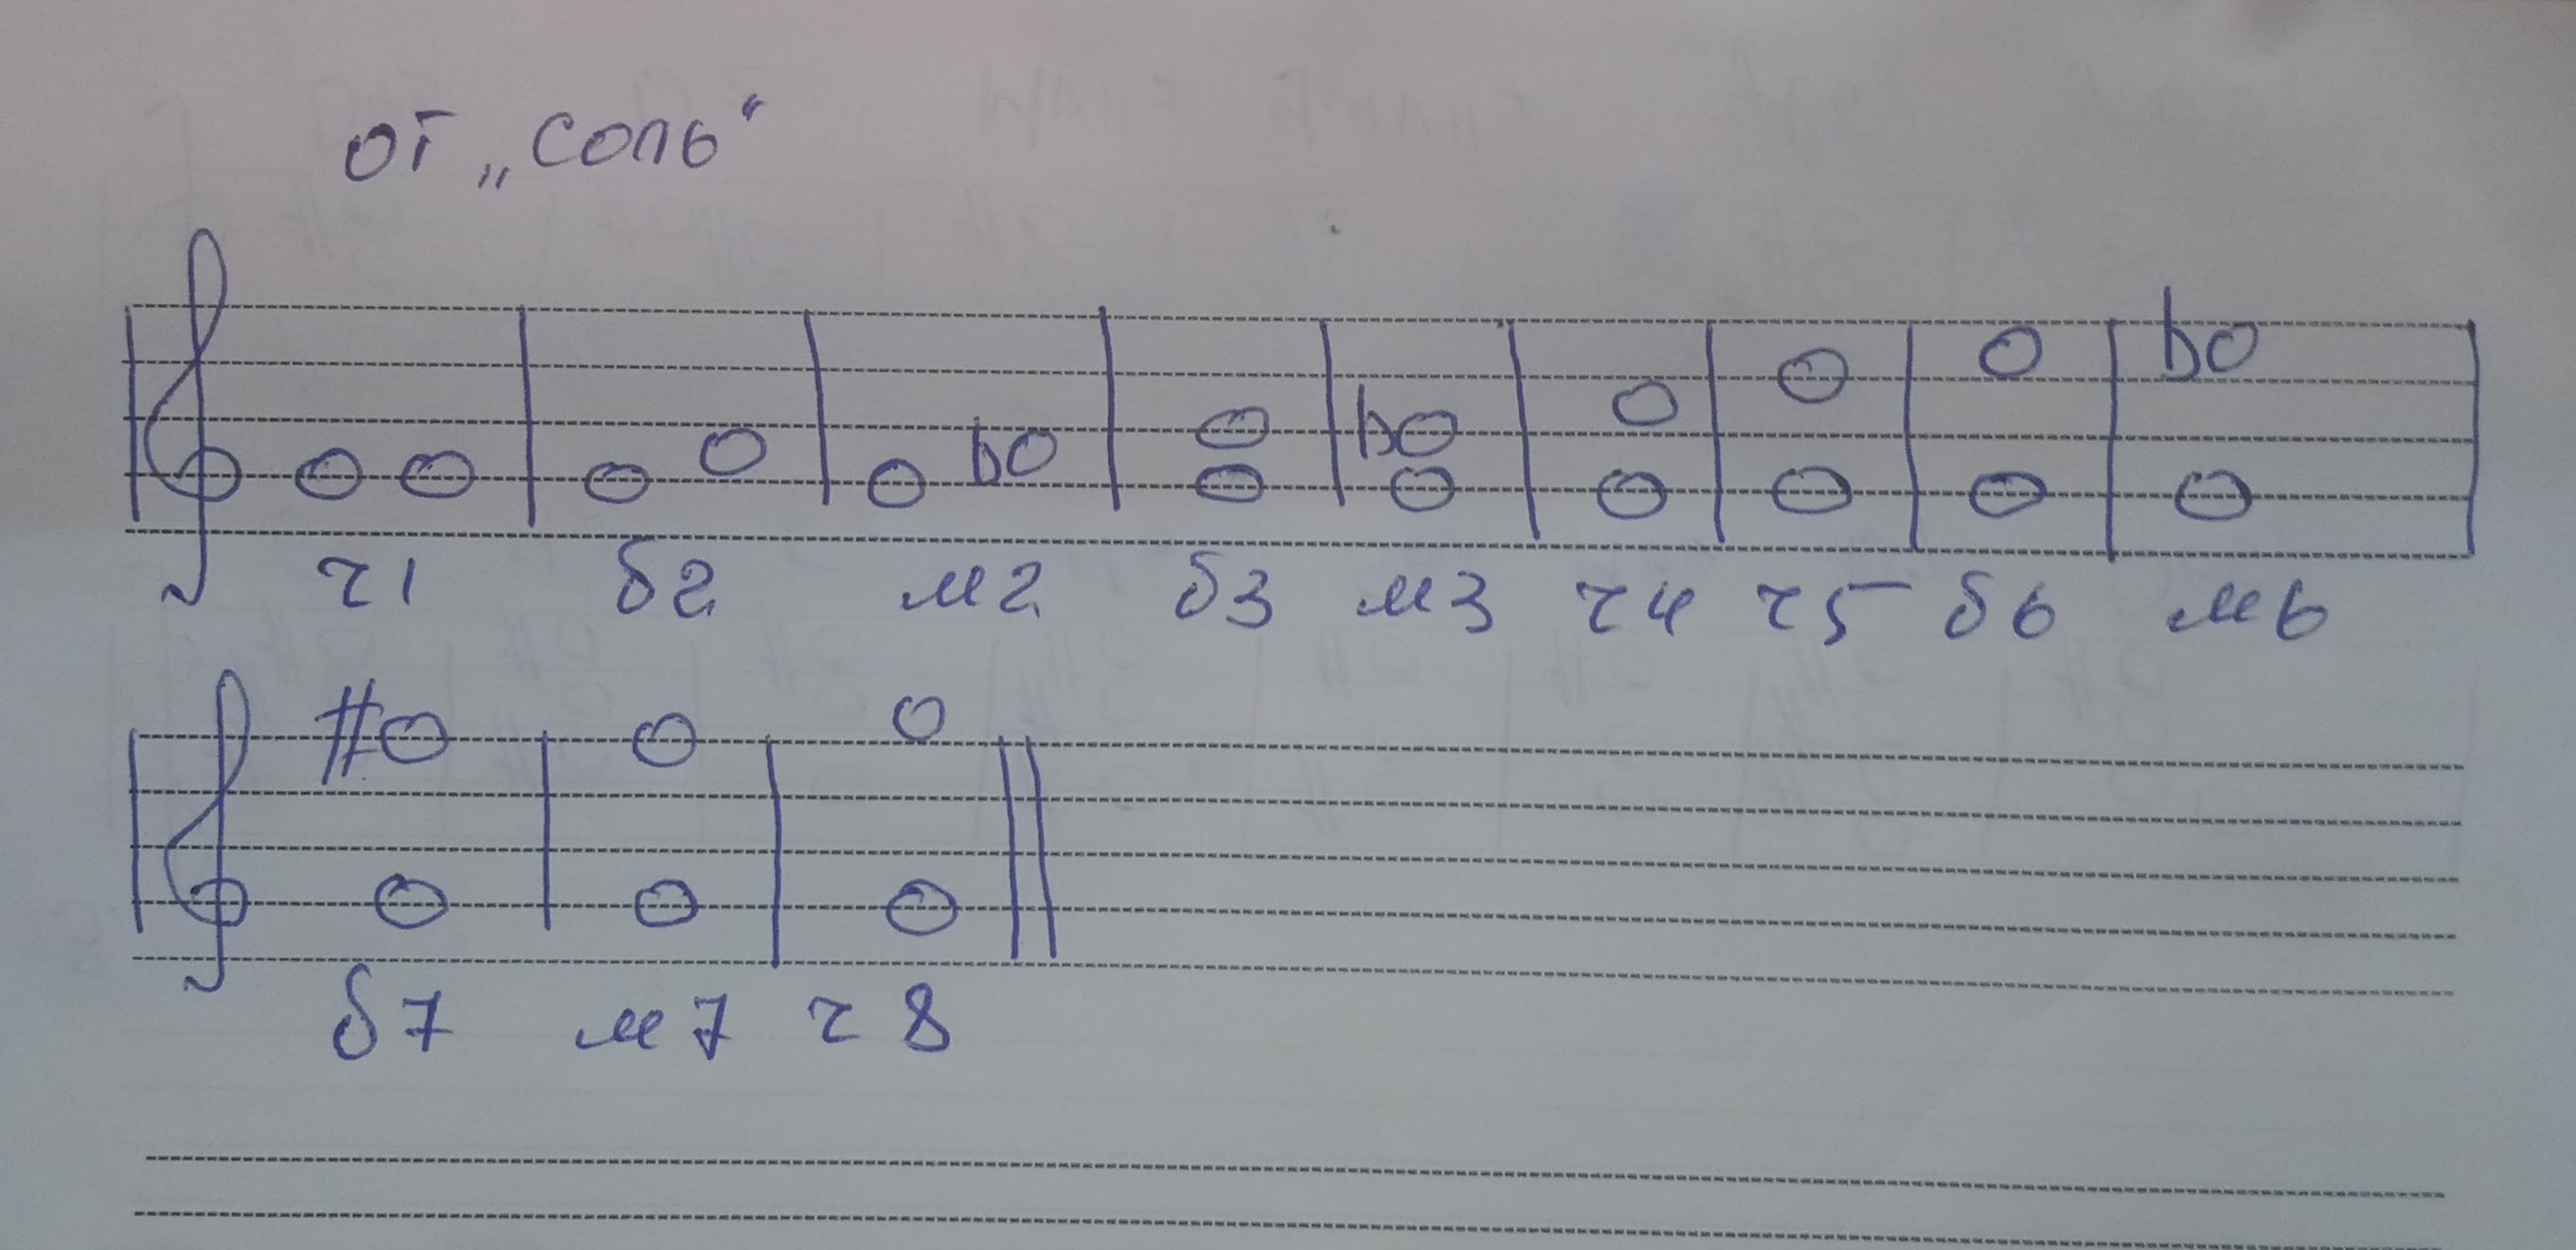 от „соль“
ч1 б2 м2 б3 м3 ч4 ч5 б6 м6
б7 м7 ч8